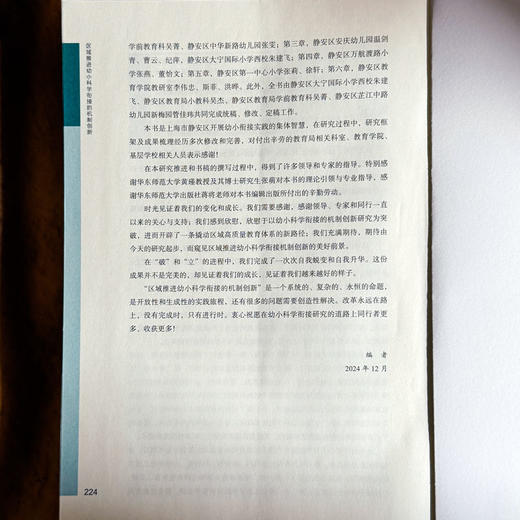 区域推进幼小科学衔接的机制创新
学前教育科吴菁、静安区中华新路幼儿园张雯；第三章，静安区安庆幼儿园温剑
青、曹云、纪萍，静安区大宁国际小学西校朱建飞；第四章，静安区万航渡路小
学张燕、董怡文；第五章，静安区第一中心小学张莉、徐轩；第六章，静安区教
育学院教研室李伟忠、斯菲、洪晔。此外，全书由静安区大宁国际小学西校朱建
飞、静安区教育局小教科吴杰、静安区教育局学前教育科吴菁、静安区芷江中路
幼儿园新梅园管佳玮共同完成统稿、修改、定稿工作。
本书是上海市静安区开展幼小衔接实践的集体智慧，在研究过程中，研究框
架及成果梳理经历多次修改和完善，对付出辛劳的教育局相关科室、教育学院、
基层学校相关人员表示感谢！
在本研究推进和书稿的撰写过程中，得到了许多领导和专家的指导。特别感
谢华东师范大学黄瑾教授及其博士研究生张萌对本书的理论引领与专业指导，感
谢华东师范大学出版社蒋将老师对本书编辑出版所付出的辛勤劳动。
时光见证着我们的变化和成长。我们需要感谢，感谢领导、专家和同行一直
以来的关心与支持；我们感到欣慰，欣慰于以幼小科学衔接的机制创新研究为突
破，进而开辟了一条撬动区域高质量教育体系的新路径；我们充满期待，期待由
今天的研究起步，而窥见区域推进幼小科学衔接机制创新的美好前景。
在“破”和“立”的进程中，我们完成了一次次自我蜕变和自我升华。这份
成果并不是完美的，却见证着我们的成长，见证着我们越来越好的样子。
“区域推进幼小科学衔接的机制创新”是一个系统的、复杂的、永恒的命题，
是开放性和生成性的实践旅程，还有很多的问题需要创造性解决。改革永远在路
上，没有完成时，只有进行时。衷心祝愿在幼小科学衔接研究的道路上同行者更
多、收获更多！
编 者
2024 年 12 月
224